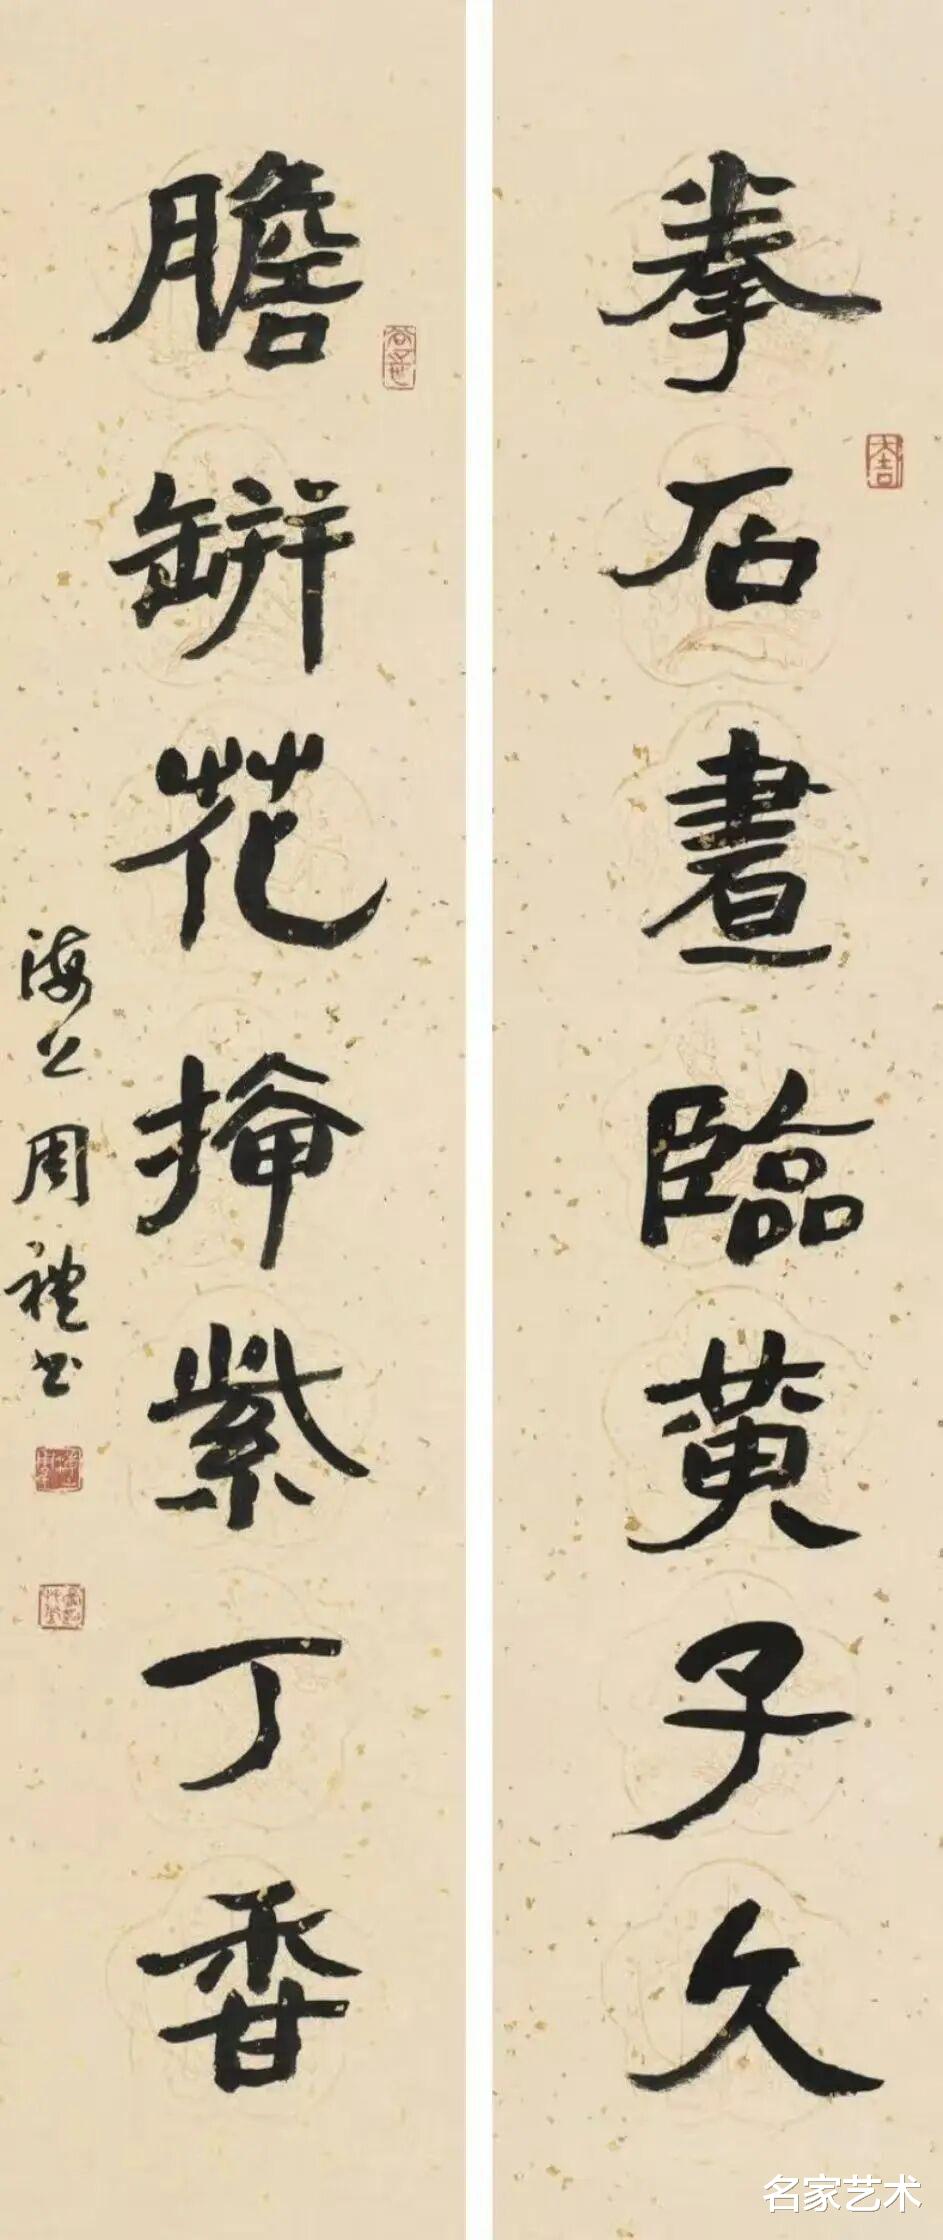 拳石畫臨黄子久
大吉
膽缾花插紫丁香
海上周禮书
名家艺术